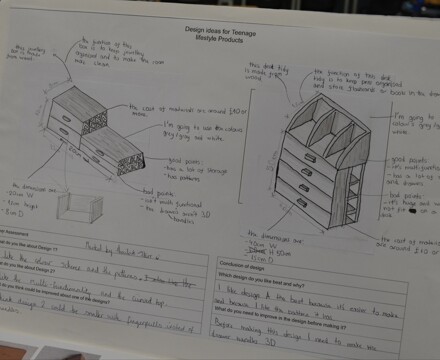 Design ideas for Teenage
lifestyle Products
this jewellery
box is made
from wood
the function of this
box is to keep jewellery
organised and to make the room
look clean
the cost of materials are around £80 or
more.
I'm going to use the colours
grey/grey and white.
good points:
-has a lot of storage
-has patterns
bad points:
-isn't multi functional
-the drawers aren't 3D
handles
the dimensions are:
this desk tidy
is made from
wood
the function of this desk
tidy is to keep pens organised
and store stationary or books in the drawers
I'm going to
colours grey/grey
white.
good points:
-it's multi functional
-has a lot of
and drawers
bad points:
-it's huge and
not fit on a
the cost of materials
are around £70 or
the dimensions are:
-40cm W
-15cm D
Assessment
do you like about Design 1?
like the colour scheme and the patterns
do you like about Design 2?
like the multi-functionality and the curved top.
do you think could be improved about one of the designs?
design I could be smaller with fingerpulls instead of
Conclusion of design
Which design do you like best and why?
I like design 2 the best because it's easier to make
and because I like the
What do you need to improve in the design before making it?
Before making this design I need to make the
drawer handles 3D